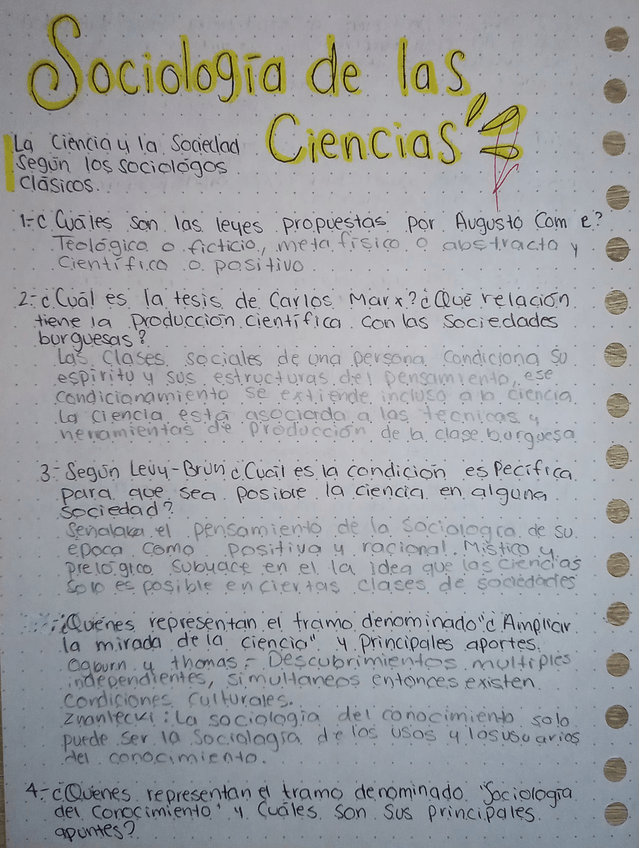 Sociología de las
Ciencias
La Ciencia y la Sociedad
Según los sociológos
Clásicos.
1-¿Cuáles son las leyes propuestas por Augusto Com e?
Teológico o ficticio, metafísico o abstracto y
Científico o positivo
2-¿Cuál es la tesis de Carlos Marx? ¿Qué relación
tiene la Producción científica con las Sociedades
burguesas?
Las Clases sociales de una persona Condiciona su
espiritu y sus estructuras del pensamiento, ese
condicionamiento se extiende incluso a la ciencia.
La Ciencia está asociada a las tecnicas y
herramientas de Producción de la clase burguesa
3- Según Levy-Brun ¿Cuál es la condición especifica
para que sea posible la ciencia en alguna
sociedad?
el pensamiento de la sociologia de su
epoca como positiva y racional. Mistico y
prelogico subyace en el la idea que las ciencias
solo es posible en ciertas clases de sociedades
¿Quienes representan el tramo denominado "¿Ampliar
la mirada de la ciencia" y Principales aportes.
Ogburn y thomas = Descubrimientos multiples
independientes, simultaneos entonces existen
Condiciones culturales.
Znaniecki: La sociologia del conocimiento solo
puede ser la Sociologia de los usos y los usuarios
del conocimiento.
4-¿Quienes representan el tramo denominado "Sociología
del Conocimiento" y Cuáles son sus principales
apuntes?